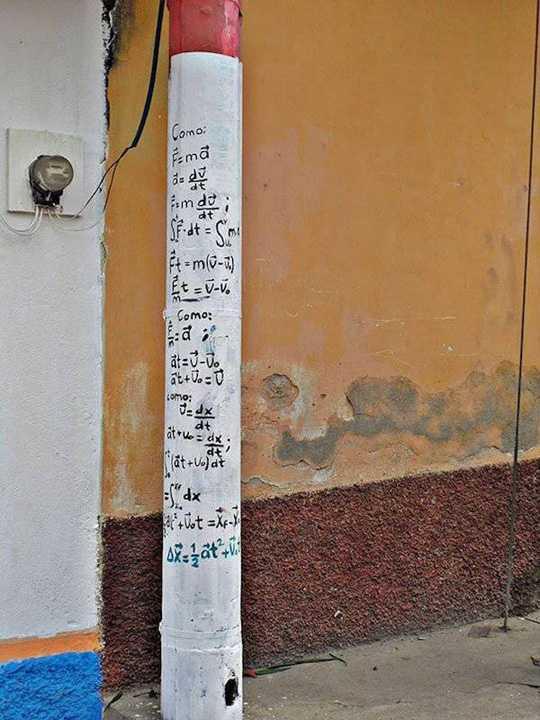 Como:
F⃗=ma⃗
a⃗=dv⃗/dt
F⃗=m dv⃗/dt ;
∫F⃗·dt = ∫m
F⃗t=m(v⃗-v⃗₀)
F⃗/m t=v⃗-v⃗₀
Como:
F⃗/m=a⃗ ;
a⃗t=v⃗-v⃗₀
a⃗t+v⃗₀=v⃗
como:
v⃗=dx⃗/dt
a⃗t+v₀=dx⃗/dt ;
∫(a⃗t+v₀)dt
=∫dx
at²+v⃗₀t =x⃗F-x⃗
Δx⃗=1/2 a⃗t²+v⃗₀t